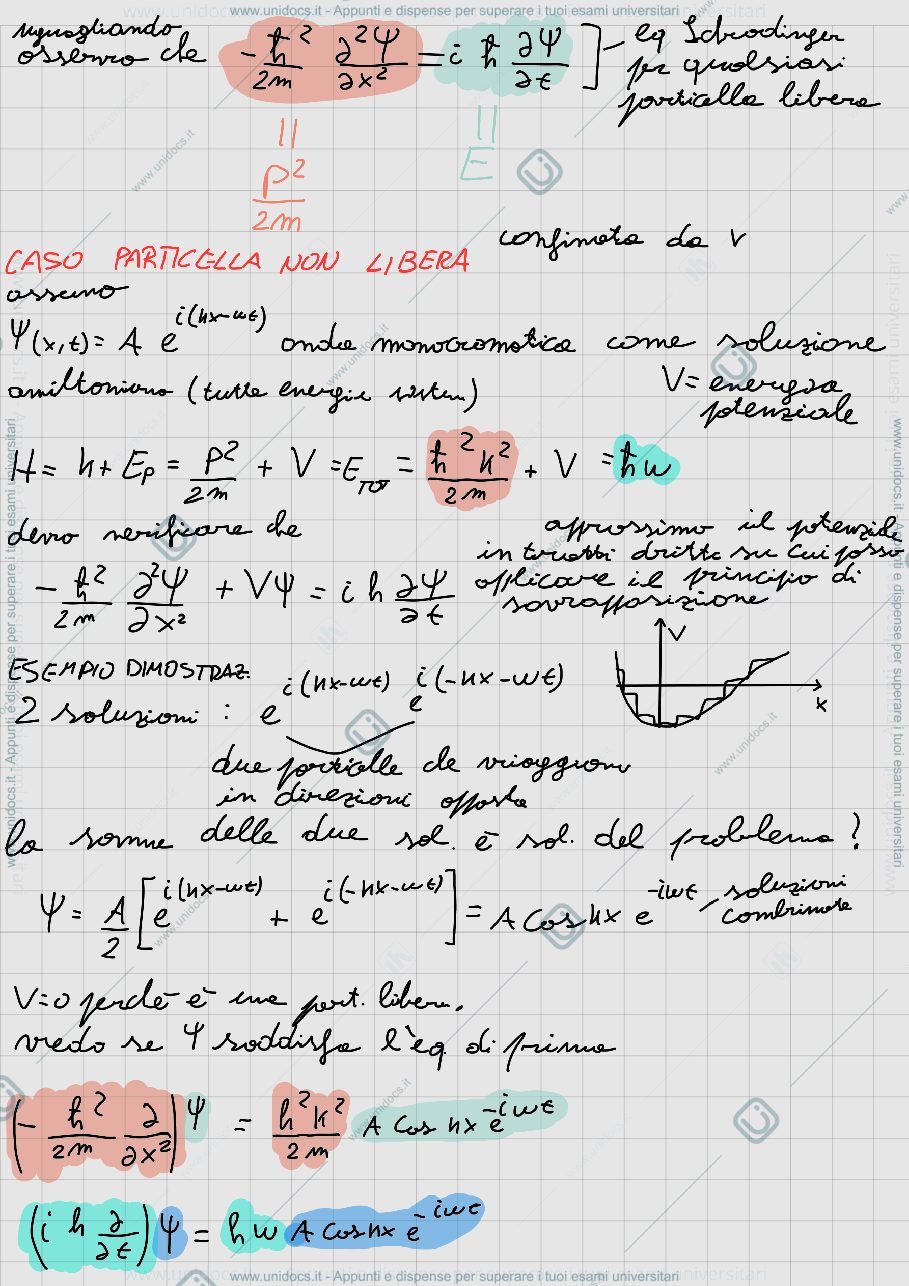 www.unidocs.it - Appunti e dispense per superare i tuoi esami universitari
uguagliando
osservo che -ħ²/2m ∂²Ψ/∂x² = i ħ ∂Ψ/∂t ] - eq Schrodinger
per qualsiasi
particella libera
= P²/2m
= E
CASO PARTICELLA NON LIBERA confinata da V
assumo
Ψ(x,t) = A e^i(kx-ωt) onda monocromatica come soluzione
amiltoniana (tutte energie sistem)
V = energia
potenziale
H = k + Ep = P²/2m + V = E_TOT = ħ²k²/2m + V = ħω
devo verificare che
-ħ²/2m ∂²Ψ/∂x² + VΨ = i ħ ∂Ψ/∂t
approssimo il potenziale
in tratti dritti su cui posso
applicare il principio di
sovrapposizione
V
x
ESEMPIO DIMOSTRAZ.
2 soluzioni : e^i(kx-ωt) e^i(-kx-ωt)
due particelle che viaggiano
in direzioni opposte
la somma delle due sol. è sol. del problema?
Ψ = A/2 [e^i(kx-ωt) + e^i(-kx-ωt)] = A cos kx e^-iωt - soluzioni
combinate
V=0 perchè è una part. libera,
vedo se Ψ soddisfa l'eq. di prima
(-ħ²/2m ∂/∂x²) Ψ = ħ²k²/2m A cos kx e^-iωt
(i ħ ∂/∂t) Ψ = ħω A cos kx e^-iωt
www.unidocs.it - Appunti e dispense per superare i tuoi esami universitari